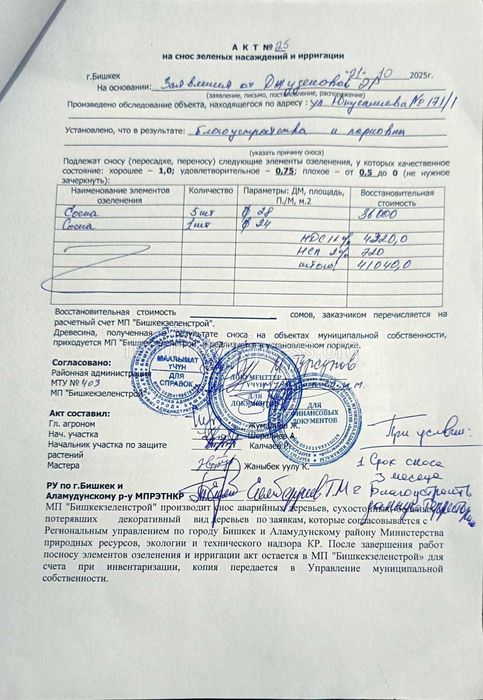 А К Т № 25
на снос зеленых насаждений и ирригации
г.Бишкек "21" 10 2025г.
На основании: Заявления от
(заявление, письмо, постановление, распоряжение)
Произведено обследование объекта, находящегося по адресу : ул № 171/1
Установлено, что в результате: благоустройства и парковки
(указать причину сноса)
Подлежат сносу (пересадке, переносу) следующие элементы озеленения, у которых качественное
состояние: хорошее – 1,0; удовлетворительное – 0,75; плохое – от 0,5 до 0 (не нужное
зачеркнуть):
Наименование элементов озеленения Количество Параметры: ДМ, площадь, П./М, м.2 Восстановительная стоимость
Сосна 5 шт ф 28 36000
Сосна 1 шт ф 24
НДС 12% 4320,0
НСП 2% 720
итого: 41040,0
Восстановительная стоимость сомов, заказчиком перечисляется на
расчетный счет МП "Бишкекзеленстрой".
Древесина, полученная в результате сноса на объектах муниципальной собственности,
приходуется МП "Бишкекзеленстрой" и реализуется в установленном порядке.
Согласовано:
Районная администрация
МТУ № 403
МП "Бишкекзеленстрой"
МААЛЫМАТ ҮЧҮН
ДЛЯ СПРАВОК
ДЛЯ ФИНАНСОВЫХ ДОКУМЕНТОВ
Акт составил:
Гл. агроном Ж.
Нач. участка А.
Начальник участка по защите
растений
Мастера Жаныбек уулу К.
При условии:
1 Срок сноса
3 месяца
Благоустроить
РУ по г.Бишкек и
Аламудунскому р-у МПРЭТНКР
МП "Бишкекзеленстрой" производит снос аварийных деревьев,
потерявших декоративный вид деревьев по заявкам, которые согласовывается с
Региональным управлением по городу Бишкек и Аламудунскому району Министерства
природных ресурсов, экологии и технического надзора КР. После завершения работ
посносу элементов озеленения и ирригации акт остается в МП "Бишкекзеленстрой» для
счета при инвентаризации, копия передается в Управление муниципальной
собственности.